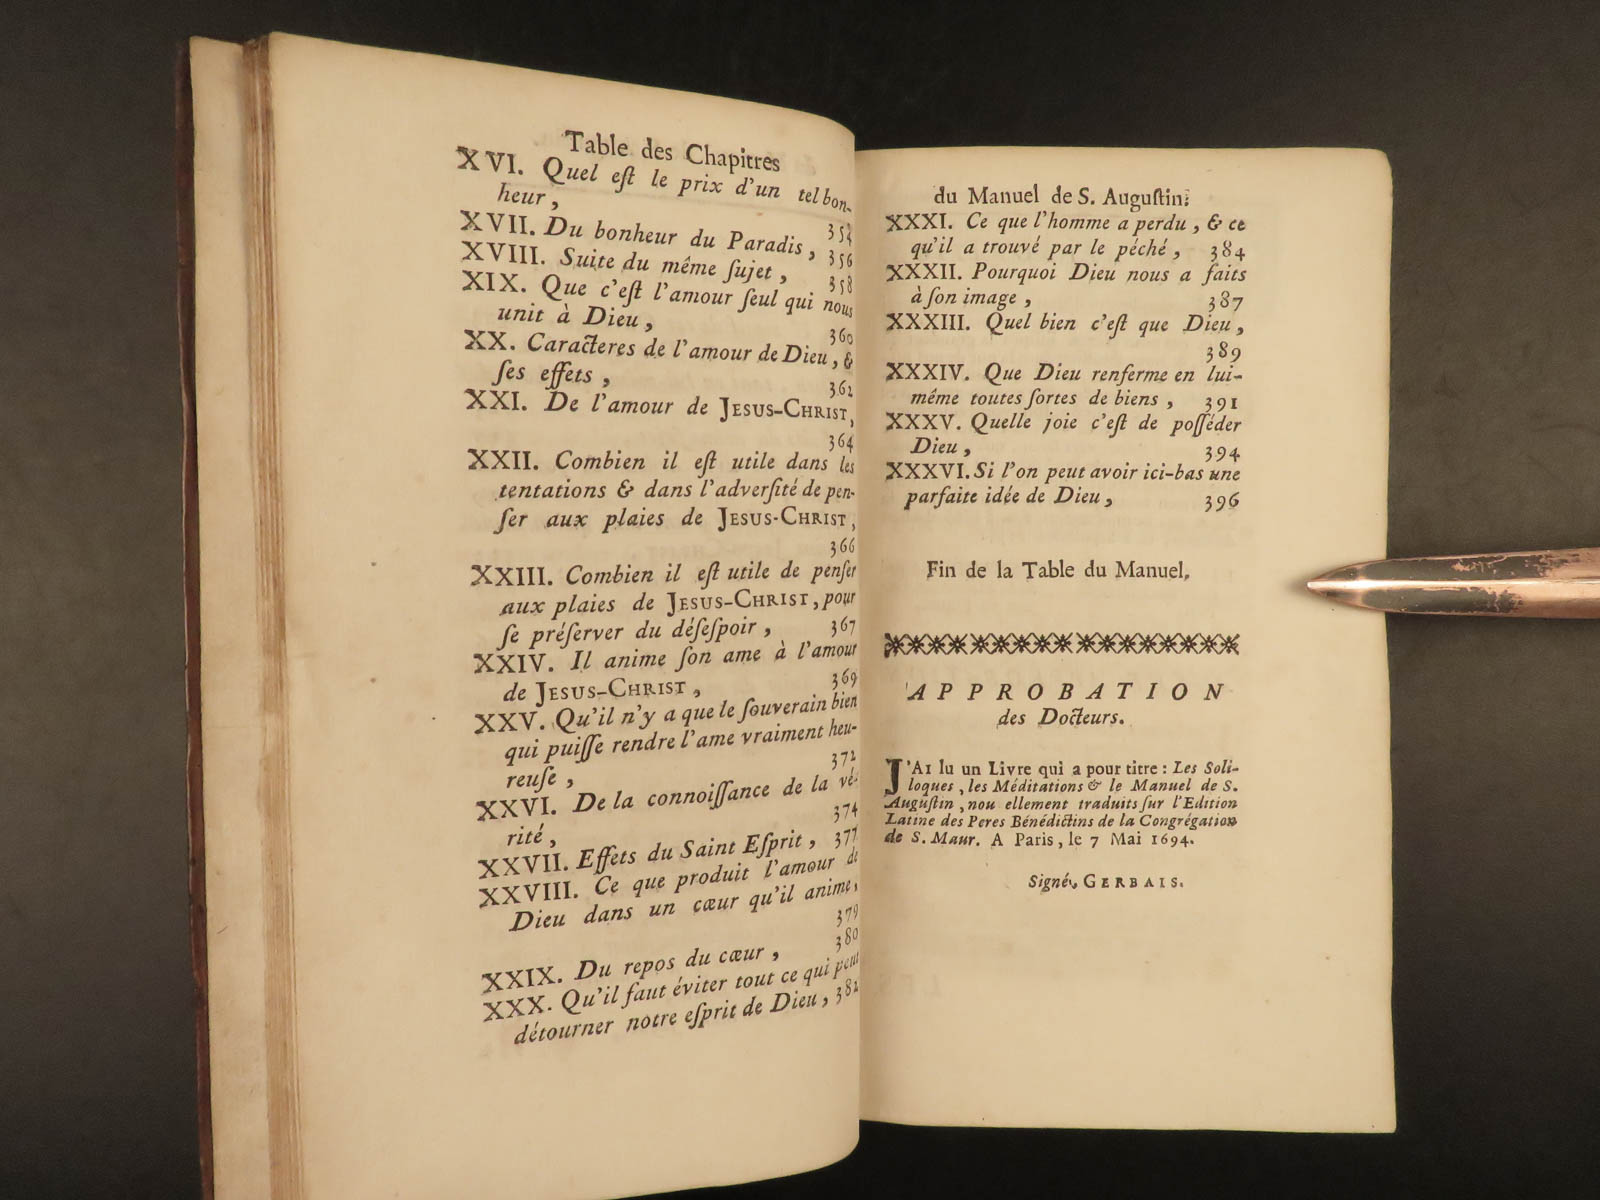 Table des Chapitres
XVI. Quel eſt le prix d'un tel bon-
heur, 354
XVII. Du bonheur du Paradis, 356
XVIII. Suite du même ſujet, 358
XIX. Que c'eſt l'amour ſeul qui nous
unit à Dieu, 360
XX. Caracteres de l'amour de Dieu, &
ſes effets, 362
XXI. De l'amour de JESUS-CHRIST,
364
XXII. Combien il eſt utile dans les
tentations & dans l'adverſité de pen-
ſer aux plaies de JESUS-CHRIST,
366
XXIII. Combien il eſt utile de penſer
aux plaies de JESUS-CHRIST, pour
ſe préſerver du déſeſpoir, 367
XXIV. Il anime ſon ame à l'amour
de JESUS-CHRIST, 369
XXV. Qu'il n'y a que le ſouverain bien
qui puiſſe rendre l'ame vraiment heu-
reuſe, 372
XXVI. De la connoiſſance de la vé-
rité, 374
XXVII. Effets du Saint Eſprit, 377
XXVIII. Ce que produit l'amour de
Dieu dans un cœur qu'il anime,
379
XXIX. Du repos du cœur, 380
XXX. Qu'il faut éviter tout ce qui peut
détourner notre eſprit de Dieu, 382
du Manuel de S. Auguſtin.
XXXI. Ce que l'homme a perdu, & ce
qu'il a trouvé par le péché, 384
XXXII. Pourquoi Dieu nous a faits
à ſon image, 387
XXXIII. Quel bien c'eſt que Dieu,
389
XXXIV. Que Dieu renferme en lui-
même toutes ſortes de biens, 391
XXXV. Quelle joie c'eſt de poſſéder
Dieu, 394
XXXVI. Si l'on peut avoir ici-bas une
parfaite idée de Dieu, 396
Fin de la Table du Manuel.
APPROBATION
des Docteurs.
J'AI lu un Livre qui a pour titre : Les Soli-
loques, les Méditations & le Manuel de S.
Auguſtin, nou ellement traduits ſur l'Edition
Latine des Peres Bénédictins de la Congrégation
de S. Maur. A Paris, le 7 Mai 1694.
Signé, GERBAIS.